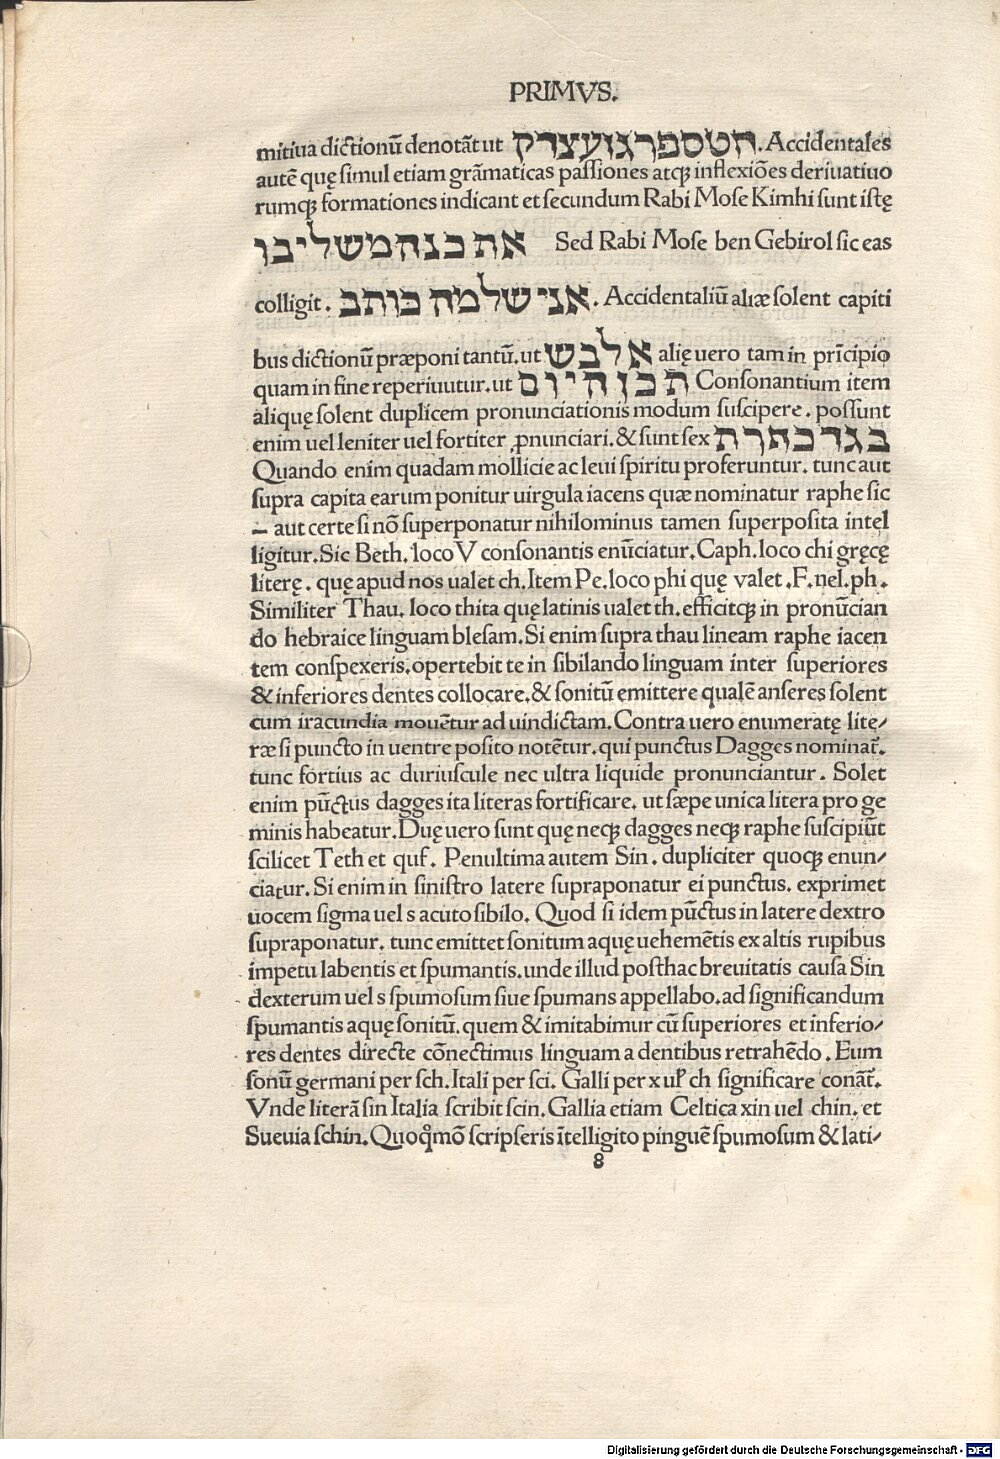 PRIMVS.
mitiua dictionū denotāt ut חטספרגזעצדק. Accidentales
autē quę simul etiam grāmaticas passiones atqꝫ inflexiōes deriuatiuo
rumqꝫ formationes indicant et secundum Rabi Mose Kimhi sunt istę
את כנהמשליבו Sed Rabi Mose ben Gebirol sic eas
colligit. אני שלמה כותב. Accidentaliū aliæ solent capiti
bus dictionū præponi tantū. ut אלבש alię uero tam in prīcipio
quam in fine reperiuutur. ut תכן היום Consonantium item
alique solent duplicem pronunciationis modum suscipere. possunt
enim uel leniter uel fortiter ꝓnunciari. & sunt sex בגדכהרת
Quando enim quadam mollicie ac leui spiritu proferuntur. tunc aut
supra capita earum ponitur uirgula iacens quæ nominatur raphe sic
– aut certe si nō superponatur nihilominus tamen superposita intel
ligitur. Sic Beth. loco V consonantis enūciatur. Caph. loco chi gręcę
literę. quę apud nos ualet ch. Item Pe. loco phi quę valet. F. nel. ph.
Similiter Thau. loco thita quę latinis ualet th. efficitqꝫ in pronūcian
do hebraice linguam blesam. Si enim supra thau lineam raphe iacen
tem conspexeris. opertebit te in sibilando linguam inter superiores
& inferiores dentes collocare. & sonitū emittere qualē anseres solent
cum iracundia mouētur ad uindictam. Contra uero enumeratę lite⸗
ræ si puncto in uentre posito notētur. qui punctus Dagges nominat᷑.
tunc fortius ac duriuscule nec ultra liquide pronunciantur. Solet
enim pūctus dagges ita literas fortificare. ut sæpe unica litera pro ge
minis habeatur. Duę uero sunt quę neqꝫ dagges neqꝫ raphe suscipiūt
scilicet Teth et quf. Penultima autem Sin. dupliciter quoqꝫ enun⸗
ciatur. Si enim in sinistro latere supraponatur ei punctus. exprimet
uocem sigma uel s acuto sibilo. Quod si idem pūctus in latere dextro
supraponatur. tunc emittet sonitum aquę uehemētis ex altis rupibus
impetu labentis et spumantis. unde illud posthac breuitatis causa Sin
dexterum uel s spumosum siue spumans appellabo. ad significandum
spumantis aquę sonitū. quem & imitabimur cū superiores et inferio⸗
res dentes directe cōnectimus linguam a dentibus retrahēdo. Eum
sonū germani per sch. Itali per sci. Galli per x uꝉ ch significare conāt᷑.
Vnde literā sin Italia scribit scin. Gallia etiam Celtica xin uel chin. et
Sueuia schin. Quoqͦmō scripseris ītelligito pinguē spumosum & lati⸗
8
Digitalisierung gefördert durch die Deutsche Forschungsgemeinschaft - DFG